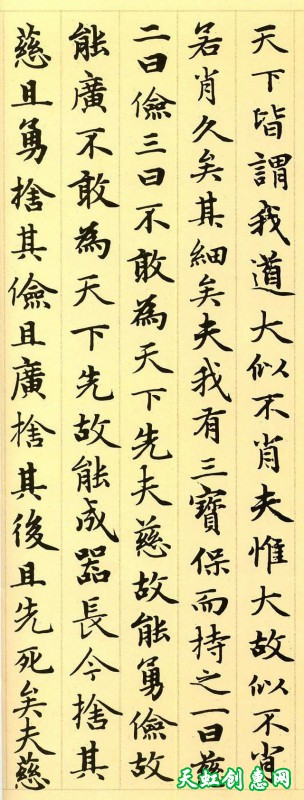 天下皆謂我道大似不肖夫惟大故似不肖
若肖久矣其細矣夫我有三寶保而持之一曰慈
二曰儉三曰不敢為天下先夫慈故能勇儉故
能廣不敢為天下先故能成器長今捨其
慈且勇捨其儉且廣捨其後且先死矣夫慈
天虹创惠网